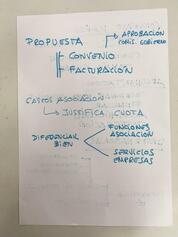 PROPUESTA
APROBACIÓN
COMIS. GOBIERNO
CONVENIO
FACTURACIÓN
GASTOS ASOCIACIÓN
JUSTIFICA CUOTA
DIFERENCIAR BIEN
FUNCIONES ASOCIACIÓN
SERVICIOS EMPRESAS